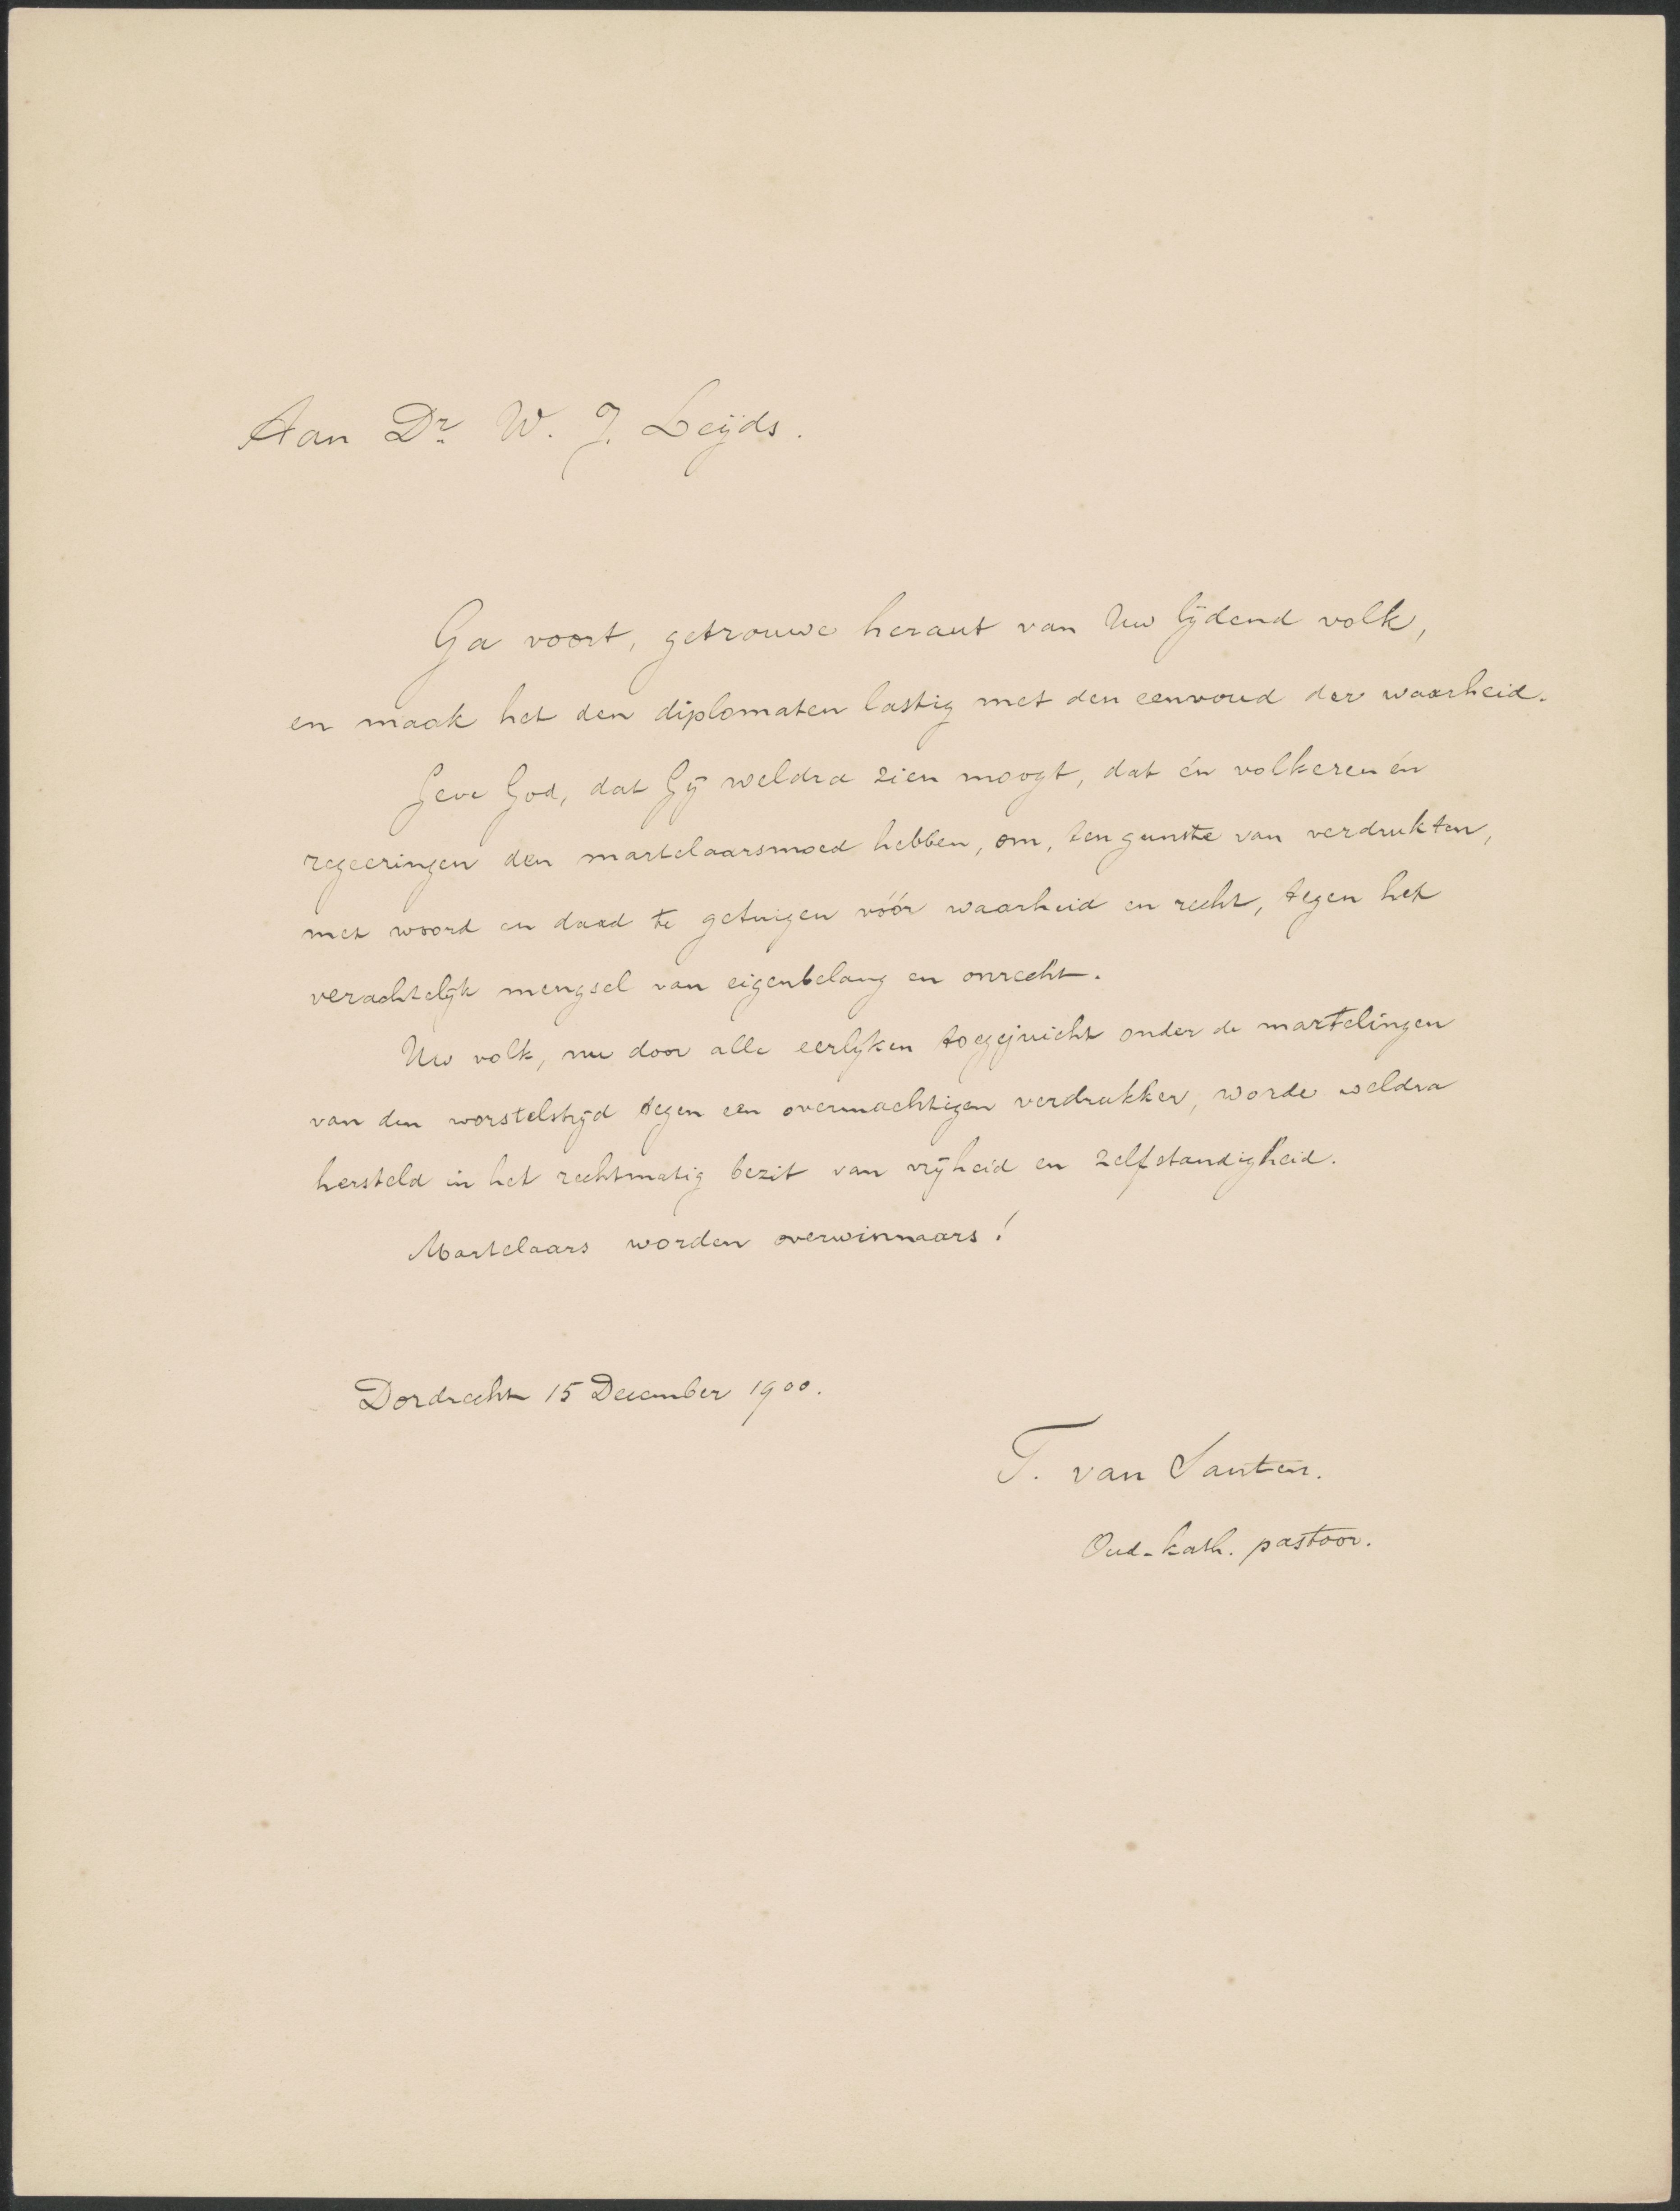 Aan Dr. W. J. Leÿds.
Ga voort, getrouwe heraut van Uw lÿdend volk,
en maak het den diplomaten lastig met den eenvoud der waarheid.
Geve God, dat Gÿ weldra zien moogt, dat én volkeren én
regeeringen den martelaarsmoed hebben, om, ten gunste van verdrukten,
met woord en daad te getuigen vóór waarheid en recht, tegen het
verachtelÿk mengsel van eigenbelang en onrecht.
Uw volk, nu door alle eerlÿken toegejuicht onder de martelingen
van den worstelstrÿd tegen een overmachtigen verdrukker, worde weldra
hersteld in het rechtmatig bezit van vrÿheid en zelfstandigheid.
Martelaars worden overwinnaars!
Dordrecht 15 December 1900.
T. van Santen.
Oud-kath. pastoor.